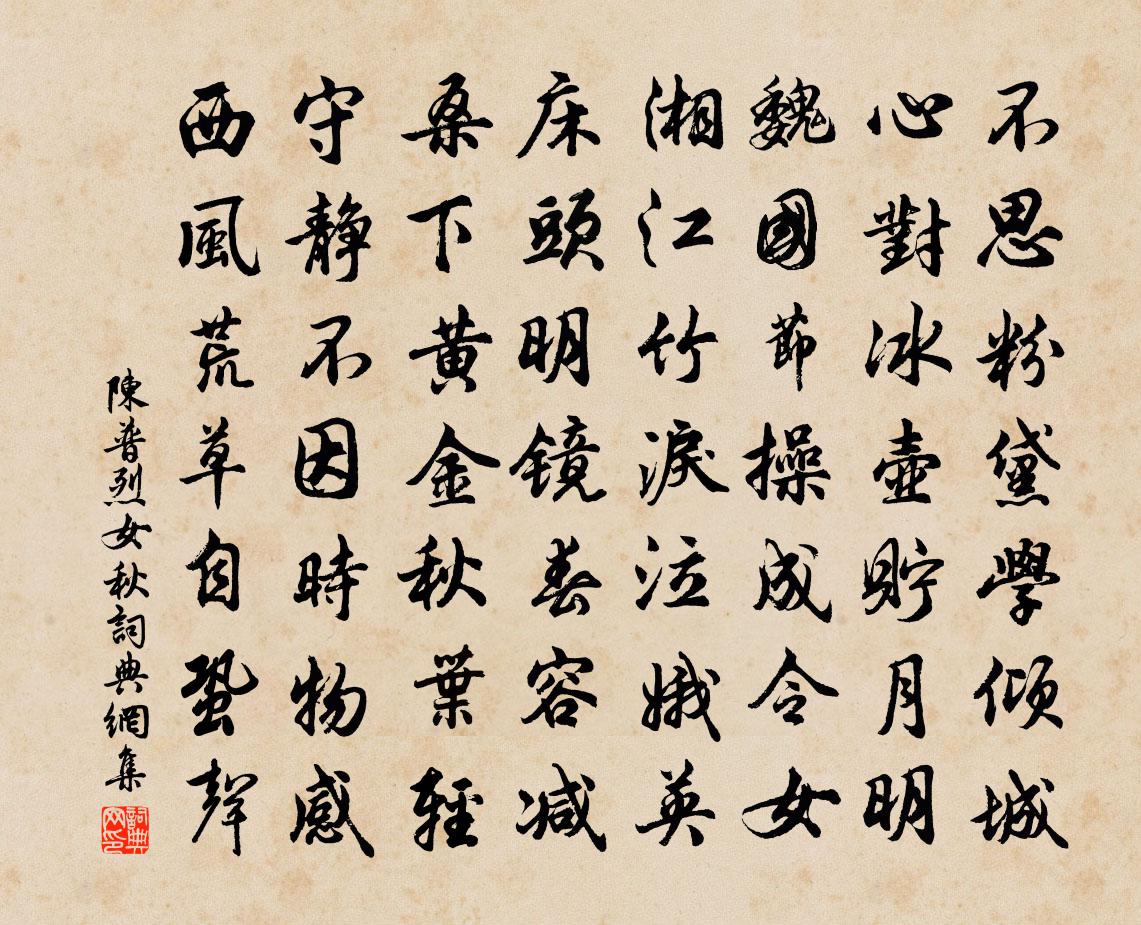 不思粉黛學傾城
心對冰壺貯月明
魏國節操成令女
湘江竹淚泣娥英
床頭明鏡春容減
桑下黄金秋葉輕
守靜不因時物感
西風荒草自蛩聲
陳普烈女秋詞典網集
詞典网印